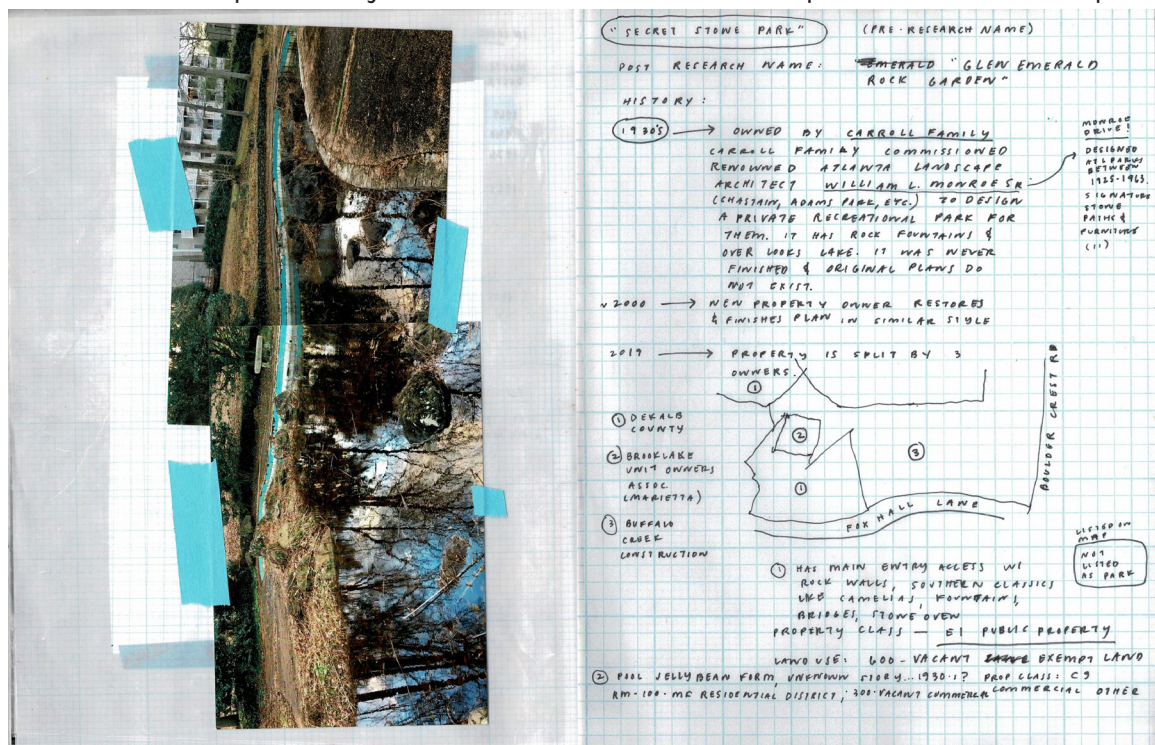 "SECRET STONE PARK" (PRE-RESEARCH NAME)
POST RESEARCH NAME: EMERALD "GLEN EMERALD
ROCK GARDEN"
HISTORY:
1930'S → OWNED BY CARROLL FAMILY
CARROLL FAMILY COMMISSIONED
RENOWNED ATLANTA LANDSCAPE
ARCHITECT WILLIAM L. MONROE SR
(CHASTAIN, ADAMS PARK, ETC.) TO DESIGN
A PRIVATE RECREATIONAL PARK FOR
THEM. IT HAS ROCK FOUNTAINS &
OVER LOOKS LAKE. IT WAS NEVER
FINISHED & ORIGINAL PLANS DO
NOT EXIST.
MONROE
DRIVE!
DESIGNED
ATL PARKS
BETWEEN
1925-1963.
SIGNATURE
STONE
PATHS &
FURNITURE
(11)
~2000 → NEW PROPERTY OWNER RESTORES
& FINISHES PLAN IN SIMILAR STYLE
2019 → PROPERTY IS SPLIT BY 3
OWNERS.
① DEKALB
COUNTY
② BROOKLAKE
UNIT OWNERS
ASSOC.
(MARIETTA)
③ BUFFALO
CREEK
CONSTRUCTION
①
②
③
①
BOULDER CREST RD
FOX HALL LANE
LISTED ON
MAP
NOT
LISTED
AS PARK
① HAS MAIN ENTRY ACCESS W/
ROCK WALLS, SOUTHERN CLASSICS
LIKE CAMELIAS, FOUNTAINS,
BRIDGES, STONE OVEN
PROPERTY CLASS — E1 PUBLIC PROPERTY
LAND USE: 600-VACANT EXEMPT LAND
② POOL JELLYBEAN FORM, UNKNOWN STORY... 1930'S? PROP CLASS: C9
RM-100-MF RESIDENTIAL DISTRICT, 300-VACANT COMMERCIAL COMMERCIAL OTHER